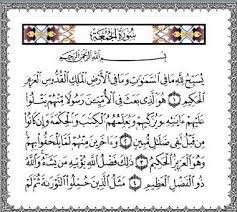 سُورَةُ الجُمُعَةِ
بِسْمِ اللَّهِ الرَّحْمَٰنِ الرَّحِيمِ
يُسَبِّحُ لِلَّهِ مَا فِي السَّمَاوَاتِ وَمَا فِي الْأَرْضِ الْمَلِكِ الْقُدُّوسِ الْعَزِيزِ
الْحَكِيمِ ١ هُوَ الَّذِي بَعَثَ فِي الْأُمِّيِّينَ رَسُولًا مِنْهُمْ يَتْلُو
عَلَيْهِمْ آيَاتِهِ وَيُزَكِّيهِمْ وَيُعَلِّمُهُمُ الْكِتَابَ وَالْحِكْمَةَ وَإِنْ كَانُوا
مِنْ قَبْلُ لَفِي ضَلَالٍ مُبِينٍ ٢ وَآخَرِينَ مِنْهُمْ لَمَّا يَلْحَقُوا بِهِمْ
وَهُوَ الْعَزِيزُ الْحَكِيمُ ٣ ذَٰلِكَ فَضْلُ اللَّهِ يُؤْتِيهِ مَنْ يَشَاءُ وَاللَّهُ
ذُو الْفَضْلِ الْعَظِيمِ ٤ مَثَلُ الَّذِينَ حُمِّلُوا التَّوْرَاةَ ثُمَّ لَمْ